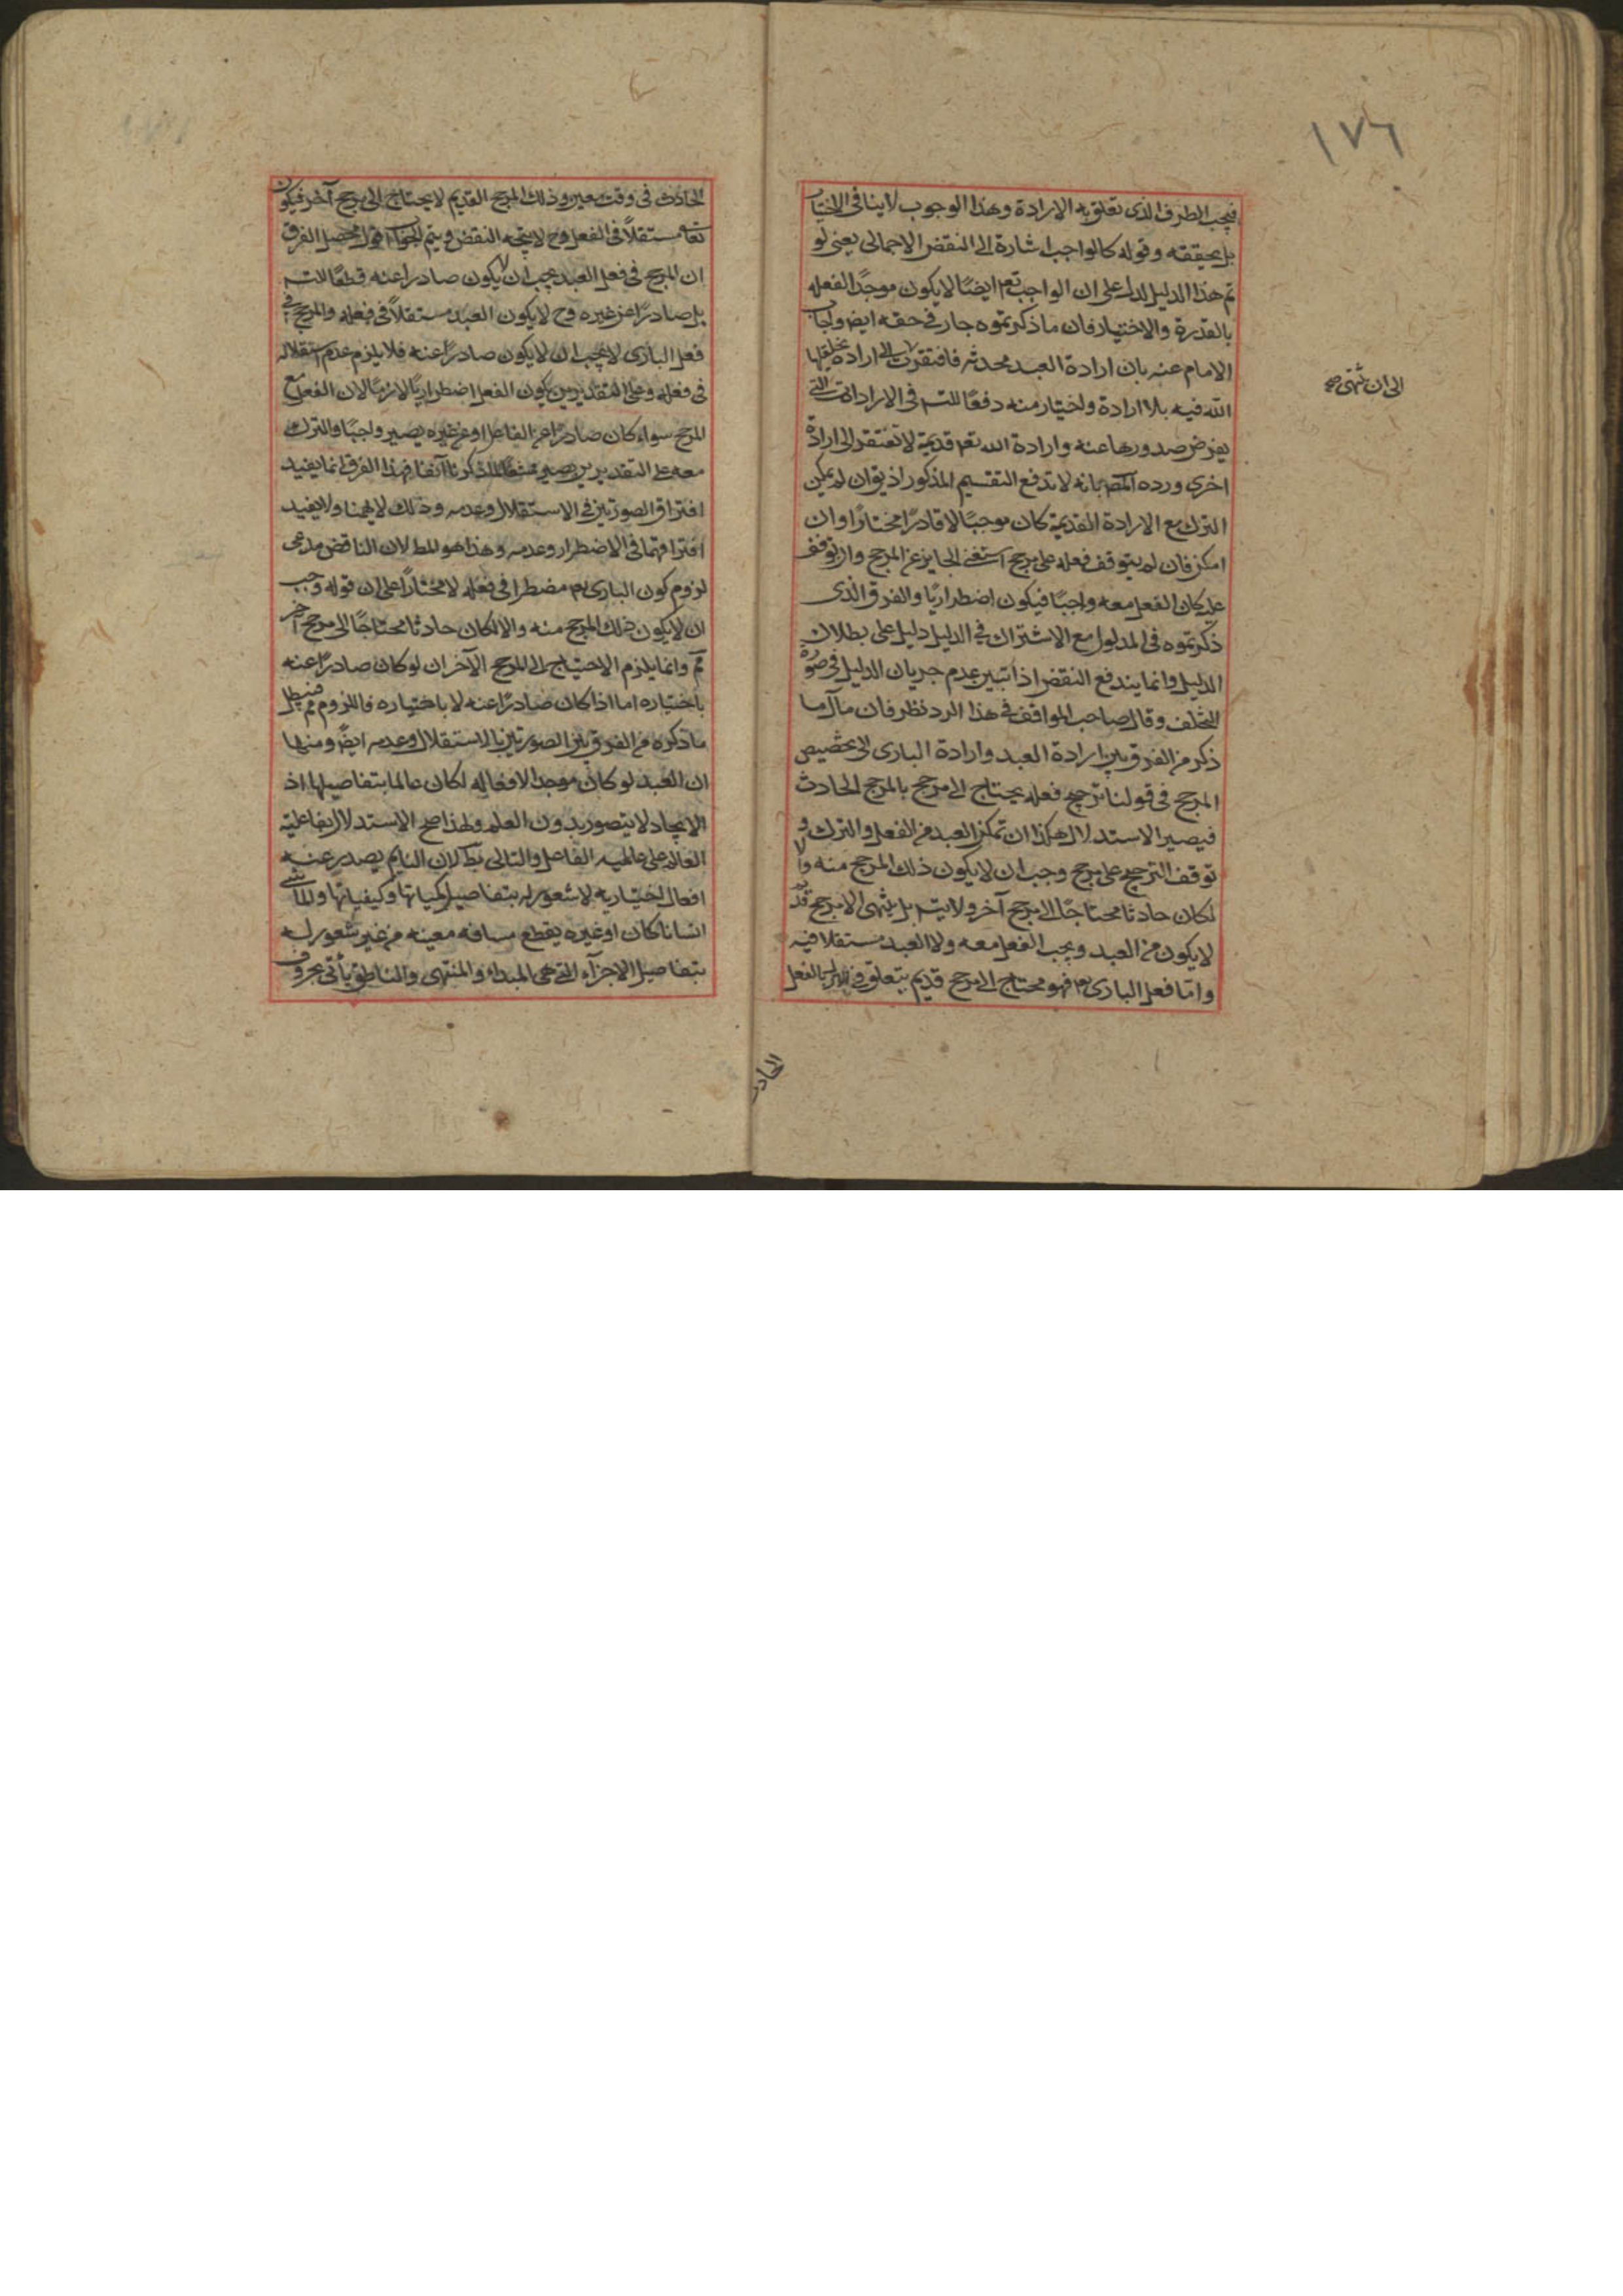 ١٧٦
فيجب الطرف الذى تعلق به الارادة وهذا الوجوب لاينافى الاختيار
بل يحققه وقوله كالواجب اشارة الى النقض الاجمالى يعنى لو
تم هذا الدليل لدل على ان الواجب تعم ايضًا لايكون موجدًا لفعله
بالقدرة والاختيار فان ماذكرتموه جار فى حقه ايض واجاب
الامام عنه بان ارادة العبد محدثة فافتقرت الى ارادة يخلقها
الله فيه بلا ارادة واختيار منه دفعًا للتس فى الارادات التى
يفرض صدورها عنه وارادة الله تعم قديمة لاتفتقر الى ارادة
اخرى ورده المص بانه لا تدفع التقسيم المذكور اذ يق ان لم يمكن
الترك مع الارادة القديمة كان موجبًا لاقادرًا مختارًا وان
امكن فان لم يتوقف فعله على مرجح استغنى الجايز عن المرجح وان توقف
عليه كان الفعل معه واجبًا فيكون اضطراريًا والفرق الذى
ذكرتموه فى المدلول مع الاشتراك فى الدليل دليل على بطلان
الدليل وانما يندفع النقض اذا تبين عدم جريان الدليل فى صورة
التخلف وقال صاحب المواقف فى هذا الرد نظر فان مآل ما
ذكر من الفرق بين ارادة العبد وارادة البارى الى تخصيص
المرجح فى قولنا ترجيح فعله يحتاج الى مرجح بالمرجح الحادث
فيصير الاستدلال هكذا ان تمكن العبد من الفعل والترك و
توقف الترجيح على مرجح وجب ان لايكون ذلك المرجح منه والا
لكان حادثا محتاجًا الى مرجح آخر ولايتس بل ينتهى الى مرجح قديم
لايكون من العبد ويجب الفعل معه ولا العبد مستقلا فيه
واما فعل البارى تعم فهو محتاج الى مرجح قديم يتعلق فى الازل بالفعل
الى ان ينتهى صح
الحادث
الحادث فى وقت معين وذلك المرجح القديم لايحتاج الى مرجح آخر فيكون
تعالى مستقلاً فى الفعل وح لايتجه النقض ويتم الجواب اقول محصل الفرق
ان المرجح فى فعل العبد يجب ان لايكون صادرا عنه قطعًا للتس
بل صادرًا عن غيره وح لايكون العبد مستقلاً فى فعله والمرجح فى
فعل البارى لايجب ان لايكون صادرًا عنه فلايلزم عدم استقلاله
فى فعله وعلى التقديرين يكون الفعل اضطراريًا لازمًا لان الفعل مع
المرجح سواء كان صادرًا عن الفاعل او عن غيره يصير واجبًا والترك
معه على التقديرين يصير ممتنعًا لما ذكرنا آنفا فهذا الفرق انما يفيد
افتراق الصورتين فى الاستقلال وعدمه وذلك لايهمنا ولايفيد
افتراقهما فى الاضطرار وعدمه وهذا هو المط لان الناقض مدعى
لزوم كون البارى تعم مضطرا فى فعله لامختارًا على ان قوله وجب
ان لايكون ذلك المرجح منه والا لكان حادثا محتاجًا الى مرجح آخر
مم وانما يلزم الاحتياج الى المرجح الآخر ان لو كان صادرًا عنه
باختياره اما اذا كان صادرًا عنه لا باختياره فاللزوم مم فبطل
ماذكره من الفرق بين الصورتين بالاستقلال وعدمه ايضً ومنها
ان العبد لو كان موجدا لافعاله لكان عالما بتفاصيلها اذ
الايجاد لايتصور بدون العلم ولهذا صح الاستدلال بفاعلية
العالم على عالمية الفاعل والتالى بط لان النايم يصدر عنه
افعال اختيارية لاشعور له بتفاصيل كمياتها وكيفياتها والماشى
انسانا كان اوغيره يقطع مسافة معينة من غير شعور له
بتفاصيل الاجزآء التى هى المبداء والمنتهى والناطق يأتى بحروف